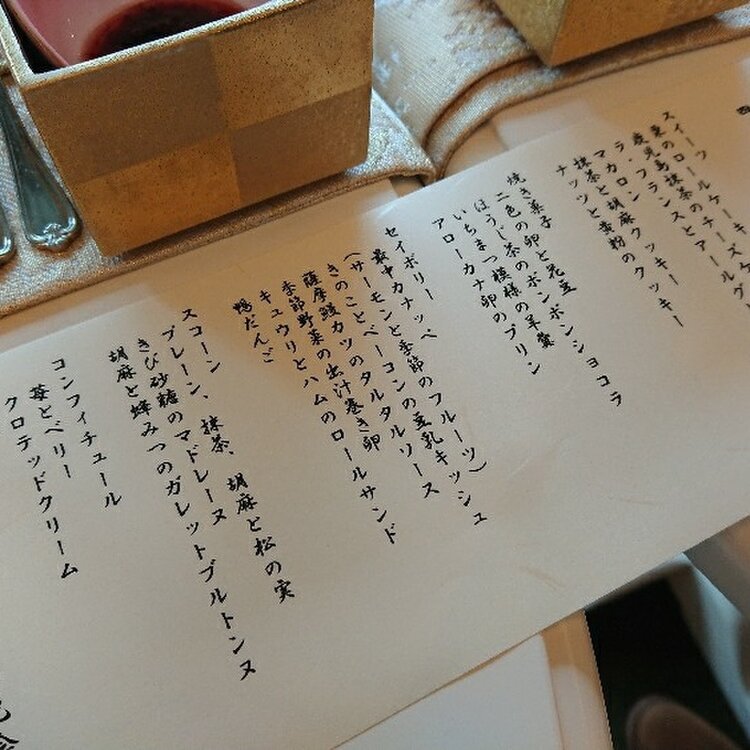 スイーツ
ロールケーキ
抹茶と胡麻のクッキー
ナッツと黄粉のクッキー
焼き菓子
二色の卵と花豆
ほうじ茶のボンボンショコラ
いちまつ模様の羊羹
アローカナ卵のプリン
セイボリー
最中カナッペ
(サーモンと季節のフルーツ)
きのことベーコンの豆乳キッシュ
薩摩鰻カツのタルタルソース
季節野菜の出汁巻き卵
キュウリとハムのロールサンド
鴨だんご
スコーン
プレーン、抹茶、胡麻と松の実
きび砂糖のマドレーヌ
胡麻と蜂みつのガレットブルトンヌ
コンフィチュール
苺とベリー
クロテッドクリーム